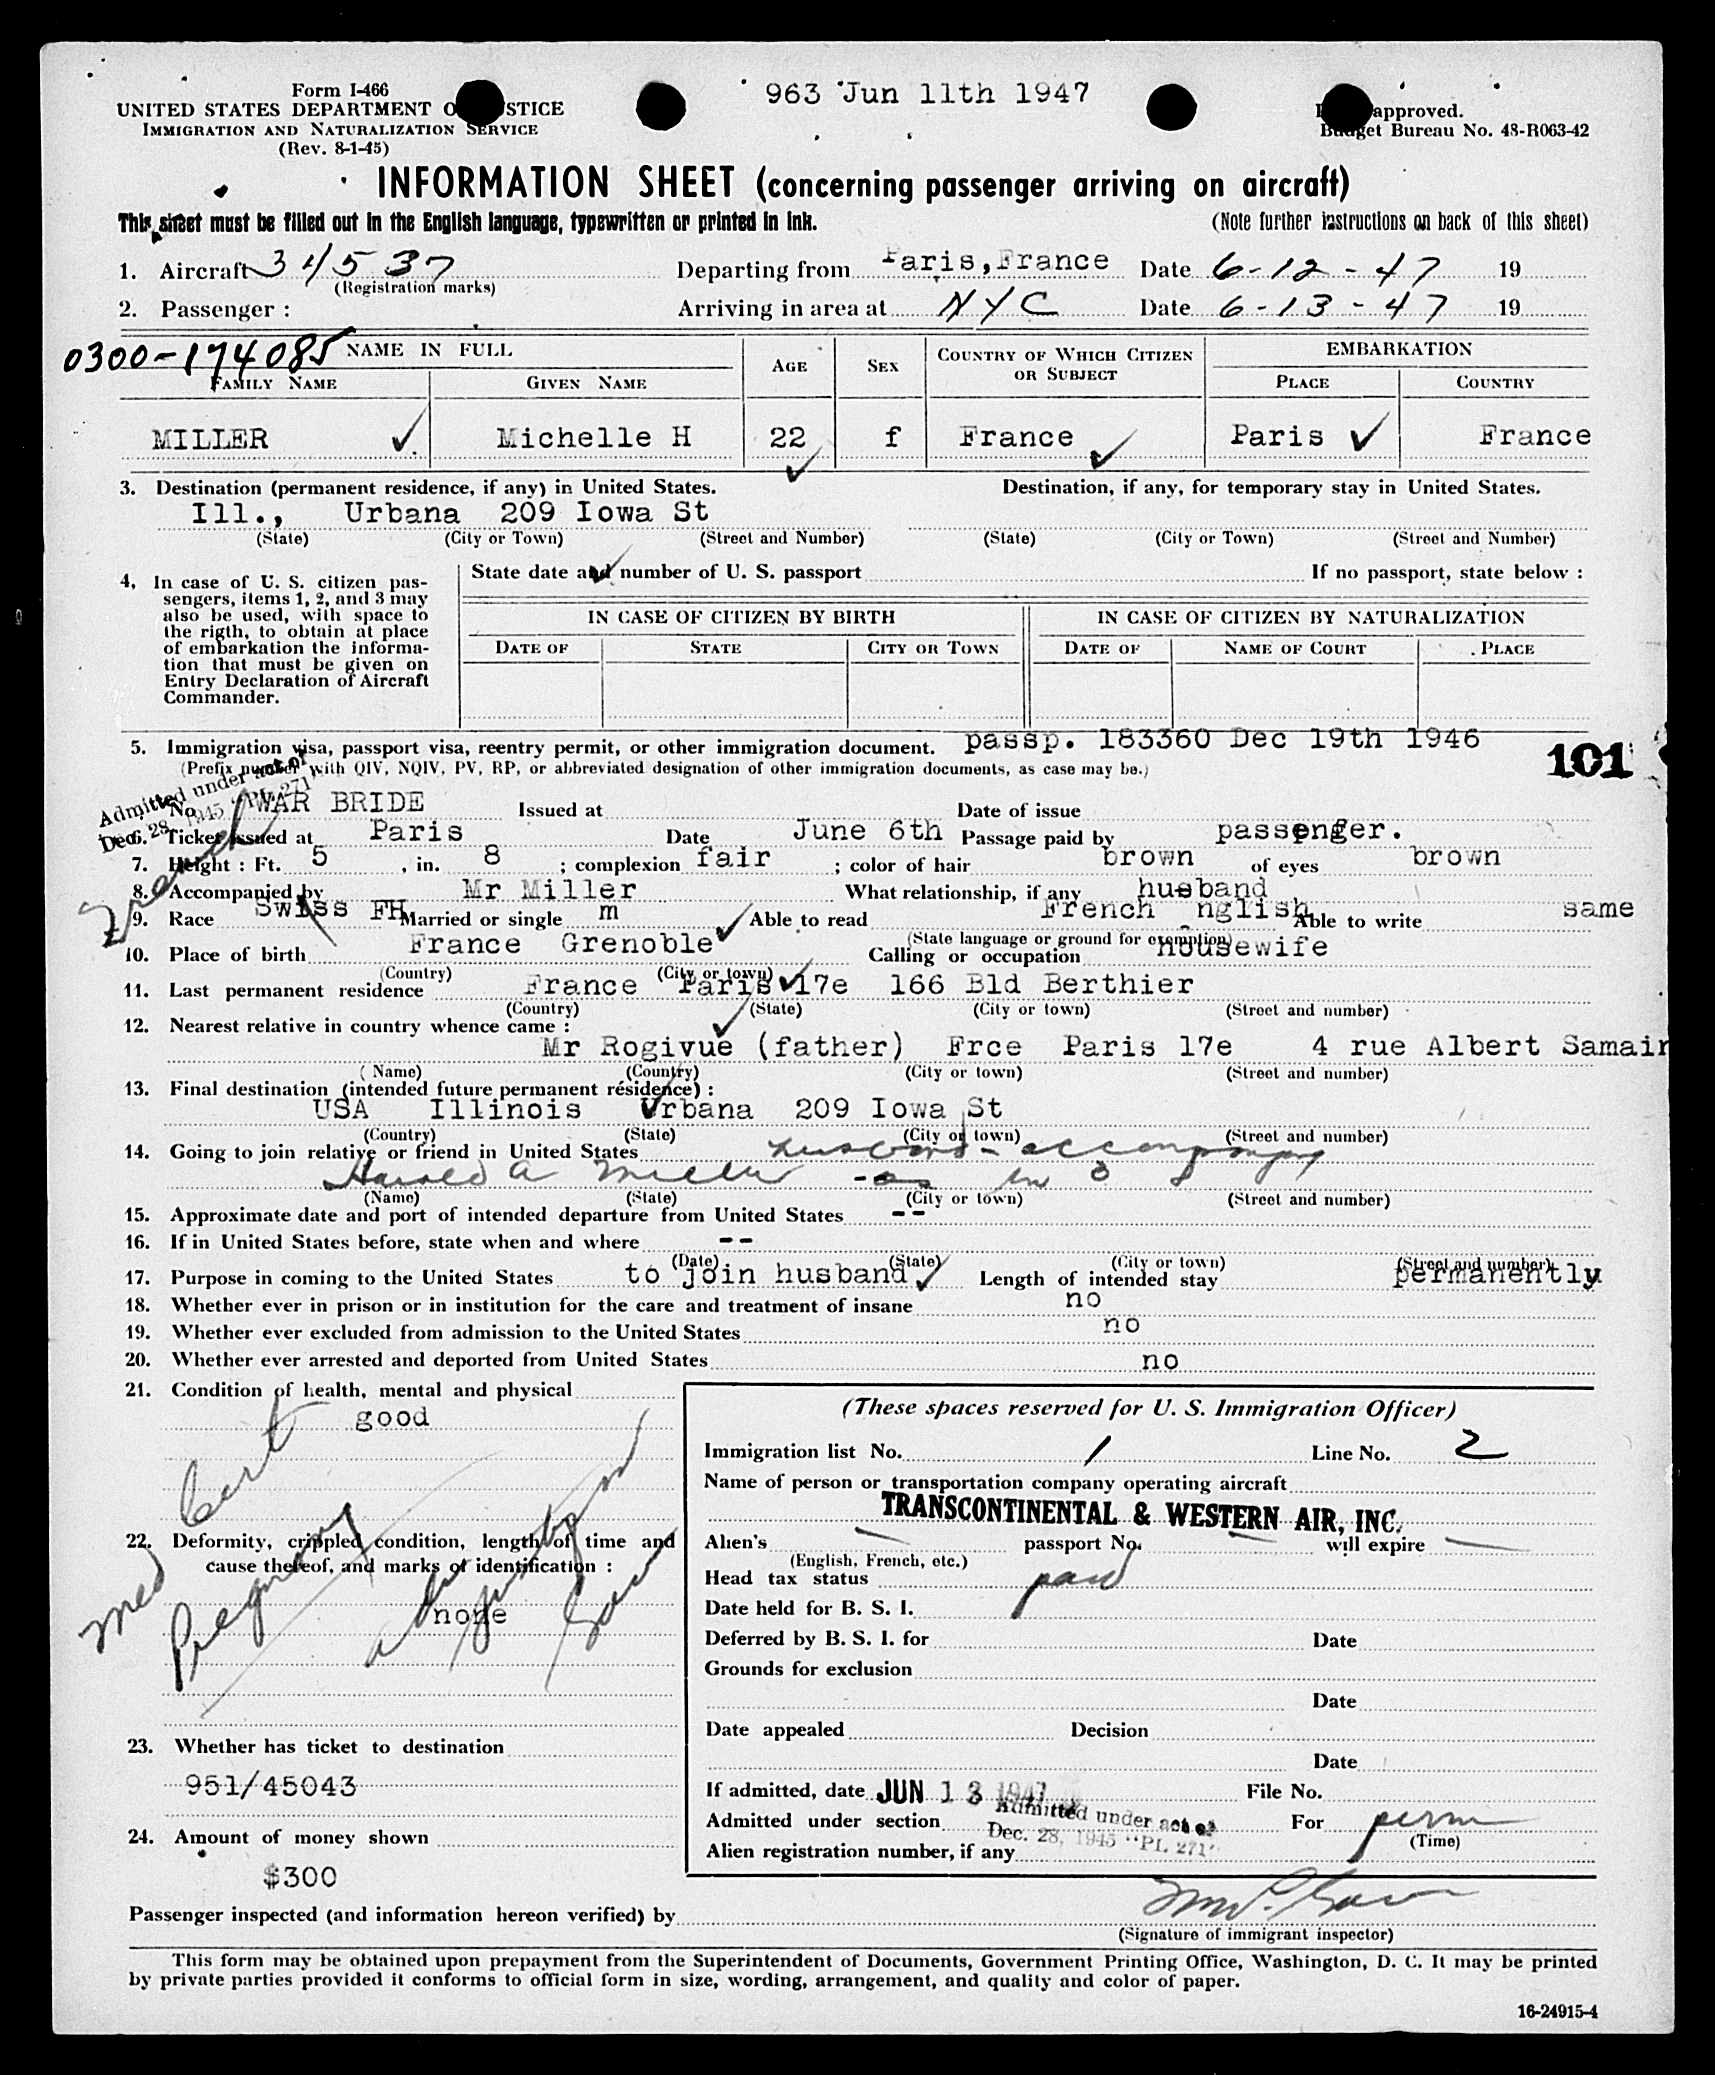 Form I-466
UNITED STATES DEPARTMENT O STICE
IMMIGRATION AND NATURALIZATION SERVICE
(Rev. 8-1-45)
963 Jun 11th 1947
approved.
Budget Bureau No. 43-R063-42
INFORMATION SHEET (concerning passenger arriving on aircraft)
This sheet must be filled out in the English language, typewritten or printed in ink.
(Note further instructions on back of this sheet)
1. Aircraft 34537 Departing from Paris,France Date 6-12-47 19
(Registration marks)
2. Passenger : Arriving in area at NYC Date 6-13-47 19
0300-174085 NAME IN FULL AGE SEX COUNTRY OF WHICH CITIZEN OR SUBJECT EMBARKATION
FAMILY NAME GIVEN NAME PLACE COUNTRY
MILLER Michelle H 22 f France Paris France
3. Destination (permanent residence, if any) in United States. Destination, if any, for temporary stay in United States.
Ill., Urbana 209 Iowa St
(State) (City or Town) (Street and Number) (State) (City or Town) (Street and Number)
4, In case of U. S. citizen pas-
sengers, items 1, 2, and 3 may
also be used, with space to
the rigth, to obtain at place
of embarkation the informa-
tion that must be given on
Entry Declaration of Aircraft
Commander.
State date and number of U. S. passport If no passport, state below :
IN CASE OF CITIZEN BY BIRTH IN CASE OF CITIZEN BY NATURALIZATION
DATE OF STATE CITY OR TOWN DATE OF NAME OF COURT PLACE
5. Immigration visa, passport visa, reentry permit, or other immigration document. passp. 183360 Dec 19th 1946
(Prefix number with QIV, NQIV, PV, RP, or abbreviated designation of other immigration documents, as case may be.)
101
Admitted under act of
Dec. 28, 1945 "PL 271"
No. WAR BRIDE Issued at Date of issue
6. Ticket issued at Paris Date June 6th Passage paid by passenger.
7. Height : Ft. 5 , in. 8 ; complexion fair ; color of hair brown of eyes brown
8. Accompanied by Mr Miller What relationship, if any husband
French
9. Race Swiss FH Married or single m Able to read French nglish Able to write same
(State language or ground for exemption)
10. Place of birth France Grenoble Calling or occupation housewife
(Country) (City or town)
11. Last permanent residence France Paris 17e 166 Bld Berthier
(Country) (State) (City or town) (Street and number)
12. Nearest relative in country whence came :
Mr Rogivue (father) Frce Paris 17e 4 rue Albert Samain
( Name) (Country) (City or town) (Street and number)
13. Final destination (intended future permanent résidence) :
USA Illinois Urbana 209 Iowa St
(Country) (State) (City or town) (Street and number)
14. Going to join relative or friend in United States husband - accompanying
Harold A Miller - as in 3
(Name) (State) (City or town) (Street and number)
15. Approximate date and port of intended departure from United States --
16. If in United States before, state when and where --
(Date) (State) (City or town) (Street and number)
17. Purpose in coming to the United States to join husband Length of intended stay permanently
18. Whether ever in prison or in institution for the care and treatment of insane no
19. Whether ever excluded from admission to the United States no
20. Whether ever arrested and deported from United States no
21. Condition of health, mental and physical
good
Med Cert
Pregnancy
22. Deformity, crippled condition, length of time and
cause thereof, and marks of identification :
none
23. Whether has ticket to destination
951/45043
24. Amount of money shown
$300
(These spaces reserved for U. S. Immigration Officer)
Immigration list No. 1 Line No. 2
Name of person or transportation company operating aircraft
TRANSCONTINENTAL & WESTERN AIR, INC.
Alien's — passport No. — will expire —
(English, French, etc.)
Head tax status paid
Date held for B. S. I.
Deferred by B. S. I. for Date
Grounds for exclusion
Date
Date appealed Decision
Date
If admitted, date JUN 13 1947 File No.
Admitted under section Admitted under act of For perm
Dec. 28, 1945 "PL 271" (Time)
Alien registration number, if any
Passenger inspected (and information hereon verified) by
(Signature of immigrant inspector)
This form may be obtained upon prepayment from the Superintendent of Documents, Government Printing Office, Washington, D. C. It may be printed
by private parties provided it conforms to official form in size, wording, arrangement, and quality and color of paper.
16-24915-4